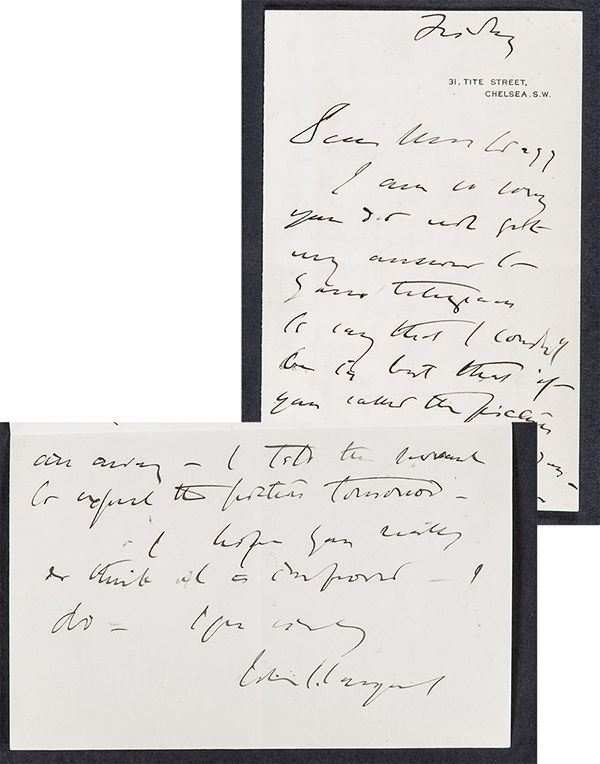 Friday
31, TITE STREET,
CHELSEA. S.W.
Dear Miss Wagg
I am so sorry
you did not get
my answer to
your telegram
to say that I couldn't
be in but that if
you called the picture
are away – I told the servant
to expect the picture tomorrow –
I hope you really
do think it is improved – I
do – Yrs
John S. Sargent